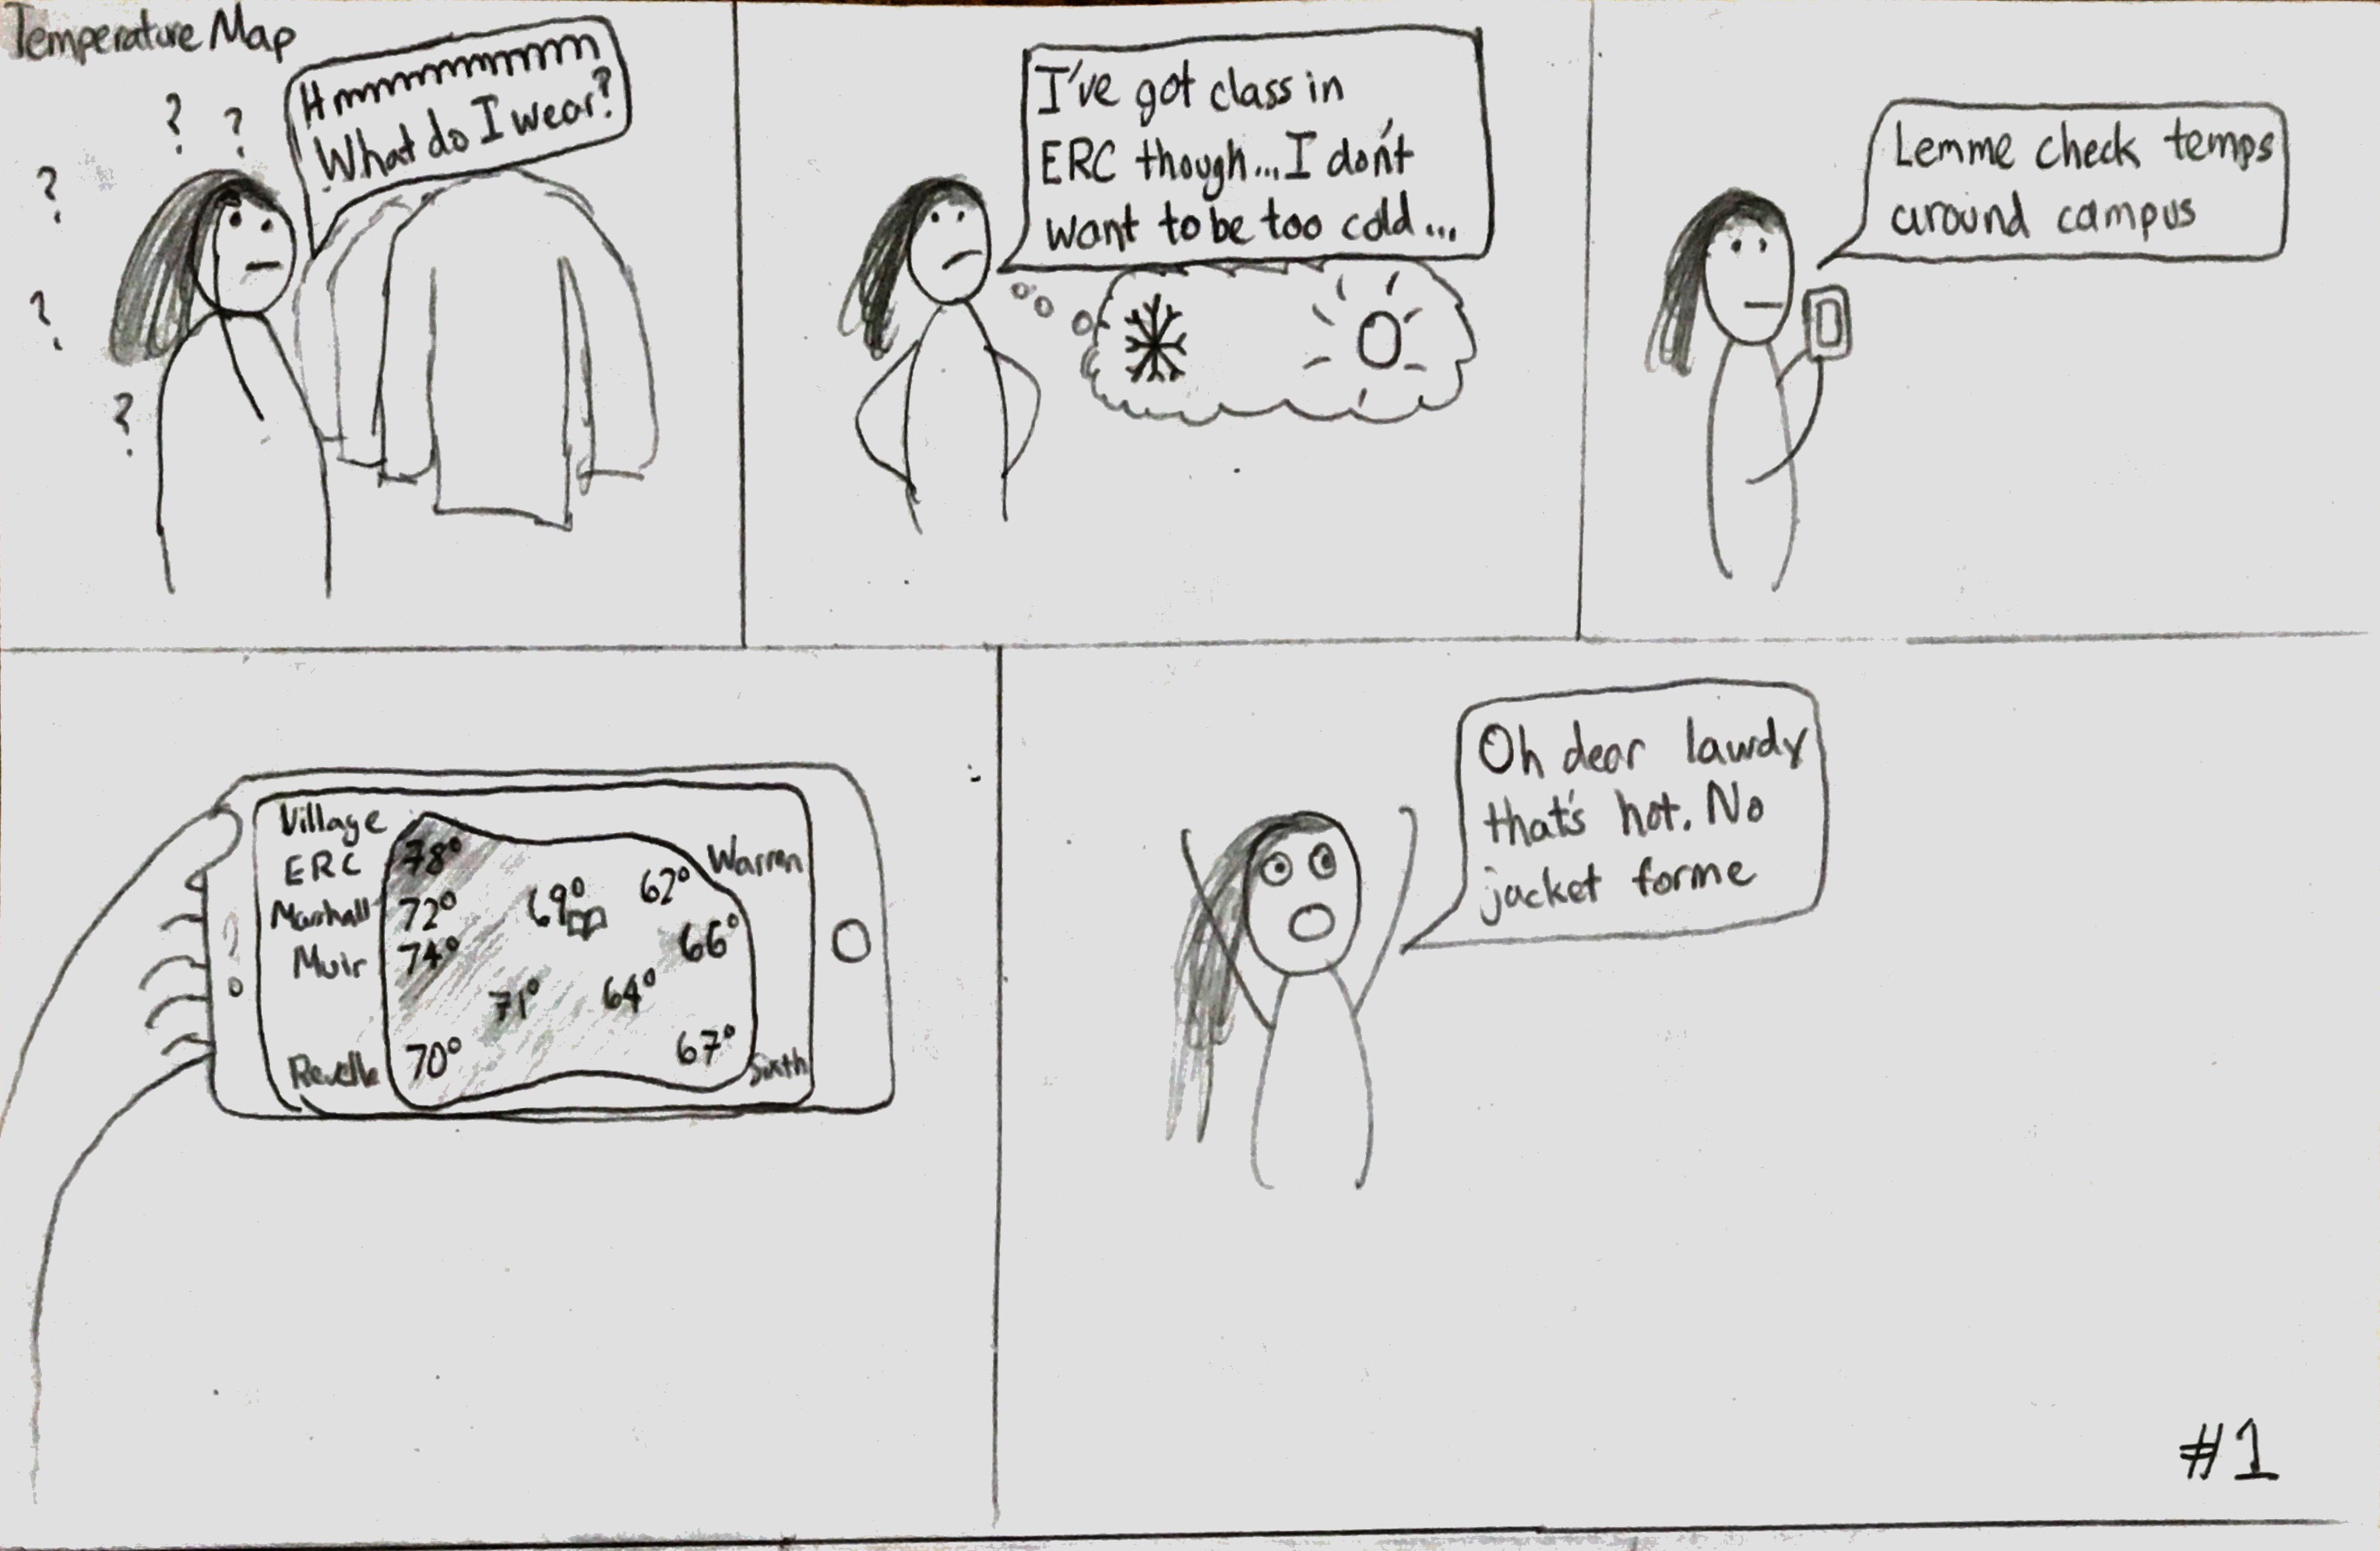 Temperature Map
Hmmmmmmmmm
What do I wear?
? ? ? ? ?
I've got class in
ERC though...I don't
want to be too cold...
Lemme check temps
around campus
Village
ERC 78°
Marshall 72°
Muir 74°
Revelle 70°
69°
62° Warren
66°
71°
64°
67° Sixth
Oh dear lawdy
that's hot. No
jacket for me
#1